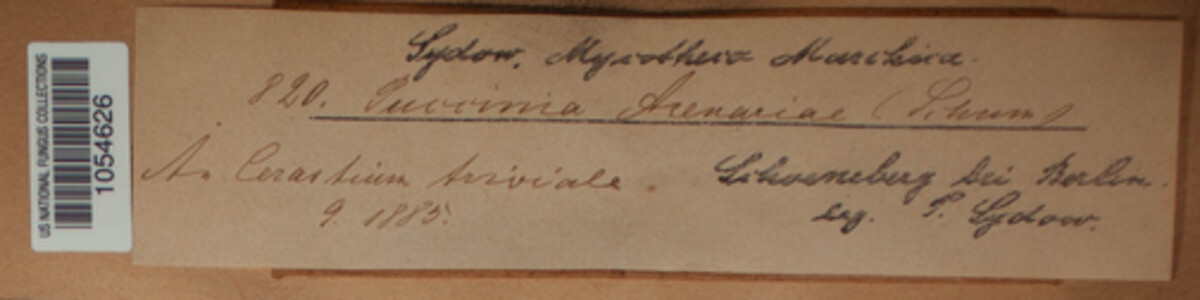 US NATIONAL FUNGUS COLLECTIONS
1054626
Sydow, Mycotheca Marchica.
820. Puccinia Arenariae (Schum)
An Cerastium triviale.
9. 1885.
Schoeneberg bei Berlin.
leg. P. Sydow.